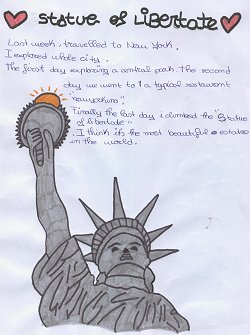 Statue of Libertate
Last week, i travelled to New York.
I explored whole city.
The first day exploring a central park. The second
day we went to a typical restaurant
"newyorkino".
Finally the last day i climbed the "Status
of libertade"
I think it's the most beautiful estatue
in the world.